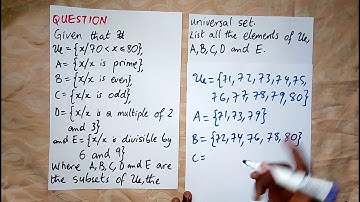 QUESTION
Given that
Ue = {x/70 < x ≤ 80},
A = {x/x is prime},
B = {x/x is even},
C = {x/x is odd},
D = {x/x is a multiple of 2
and 3}
and E = {x/x is divisible by
6 and 9}
Where A, B, C, D and E are
the subsets of Ue, the
universal set.
List all the elements of Ue,
A, B, C, D and E.
Ue = {71, 72, 73, 74, 75,
76, 77, 78, 79, 80}
A = {71, 73, 79}
B = {72, 74, 76, 78, 80}
C =